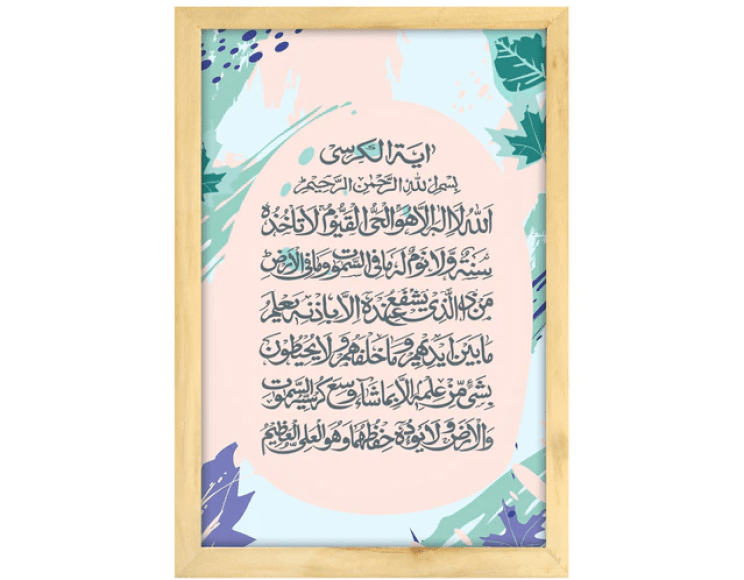 اية الكرسى
بسم الله الرحمن الرحيم
الله لا اله الا هو الحي القيوم لا تاخذه
سنة ولا نوم له ما في السموت وما في الارض
من ذا الذي يشفع عنده الا باذنه يعلم
ما بين ايديهم وما خلفهم ولا يحيطون
بشئ من علمه الا بما شاء وسع كرسيه السموت
والارض ولا يوده حفظهما وهو العلي العظيم